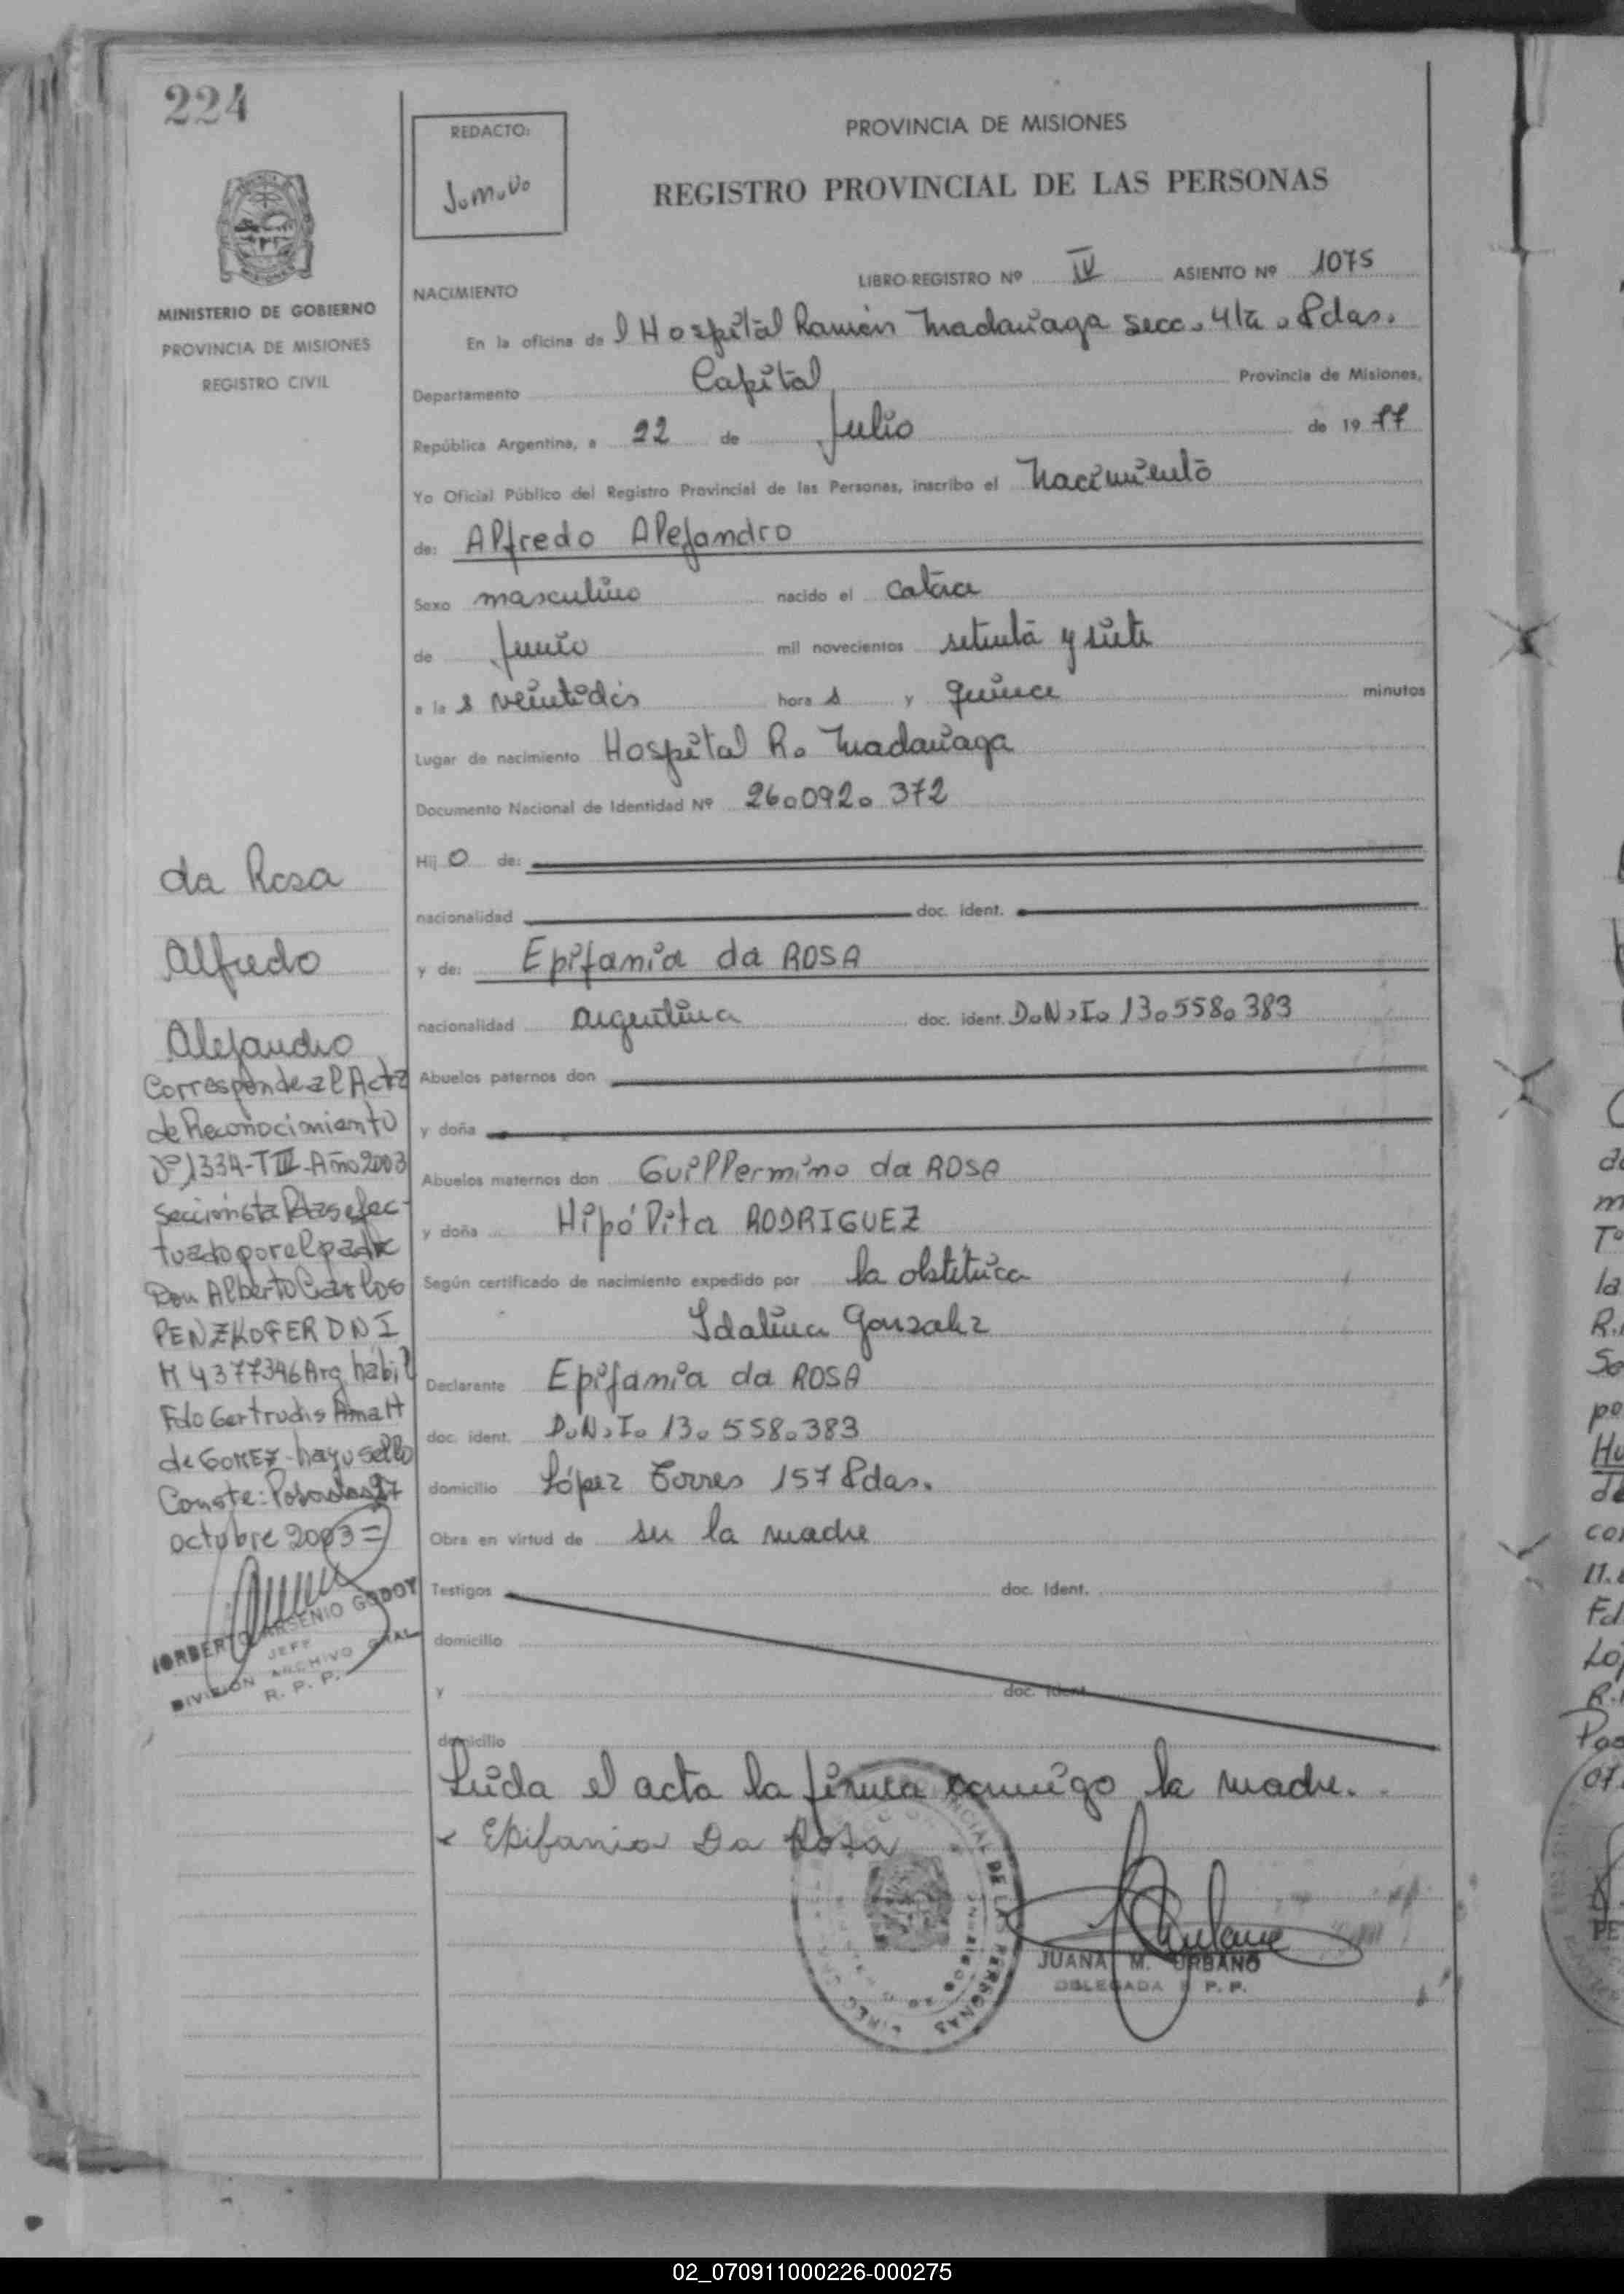 224
REDACTO:
J.M.U.
PROVINCIA DE MISIONES
REGISTRO PROVINCIAL DE LAS PERSONAS
MINISTERIO DE GOBIERNO
PROVINCIA DE MISIONES
REGISTRO CIVIL
LIBRO-REGISTRO Nº IV ASIENTO Nº 1075
NACIMIENTO
En la oficina de l Hospital Ramón Madariaga secc. 4ta. Pdas.
Departamento Capital Provincia de Misiones,
República Argentina, a 22 de Julio de 19 77
Yo Oficial Público del Registro Provincial de las Personas, inscribo el Nacimiento
de: Alfredo Alejandro
Sexo masculino nacido el catorce
de Junio mil novecientos setenta y siete
a la s veintidós hora s y quince minutos
Lugar de nacimiento Hospital R. Madariaga
Documento Nacional de Identidad Nº 26.092.372
Hij o de:
nacionalidad doc. ident.
y de: Epifania da ROSA
nacionalidad argentina doc. ident. D.N.I. 13.558.383
Abuelos paternos don
y doña
Abuelos maternos don Guillermino da ROSA
y doña Hipólita RODRIGUEZ
Según certificado de nacimiento expedido por la obstétrica
Idalina Gonzalez
Declarante Epifania da ROSA
doc. ident. D.N.I. 13.558.383
domicilio López Torres 157 Pdas.
Obra en virtud de ser la madre
Testigos doc. Ident.
domicilio
y doc. ident.
domicilio
Leída el acta la firma conmigo la madre.
Epifania Da Rosa
JUANA M. URBANO
DELEGADA R. P. P.
da Rosa
Alfredo
Alejandro
Corresponde al Acta
de Reconocimiento
Nº 1334-T III-Año 2003
Sección 6ta Pdas efec-
tuado por el padre
Don Alberto Carlos
PENZKOFER DNI
M 4377346 Arg hábil
Fdo Gertrudis Ama H
de GOMEZ-hay u sello
Conste: Posadas 27
octubre 2003=
NORBERTO ARSENIO GODOY
JEFE
DIVISION ARCHIVO GRAL
R. P. P.
02_070911000226-000275